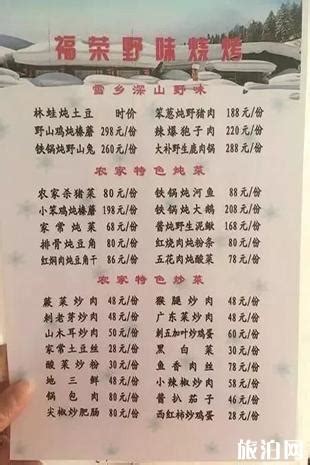 福荣野味烧烤
雪乡深山野味
林蛙炖土豆 时价 笨葱炖野猪肉 188元/份
野山鸡炖榛蘑 298元/份 辣爆狍子肉 220元/份
铁锅炖野山兔 260元/份 大补野生鹿肉锅 288元/份
农家特色炖菜
农家杀猪菜 80元/份 铁锅炖河鱼 88元/份
小笨鸡炖榛蘑 198元/份 铁锅炖大鹅 208元/份
家常炖菜 68元/份 酱炖野生泥鳅 168元/份
排骨炖豆角 80元/份 红烧肉炖粉条 80元/份
红焖肉炖豆角干 86元/份 五花肉炖酸菜 78元/份
农家特色炒菜
蕨菜炒肉 48元/份 猴腿炒肉 48元/份
刺老芽炒肉 48元/份 广东菜炒肉 48元/份
山木耳炒肉 50元/份 刺五加叶炒鸡蛋 60元/份
家常土豆丝 28元/份 黑白菜 30元/份
酸菜炒粉 30元/份 鱼香肉丝 58元/份
地三鲜 48元/份 小辣椒炒肉 58元/份
锅包肉 80元/份 酱扒茄子 46元/份
尖椒炒肥肠 80元/份 西红柿炒鸡蛋 28元/份
旅泊网